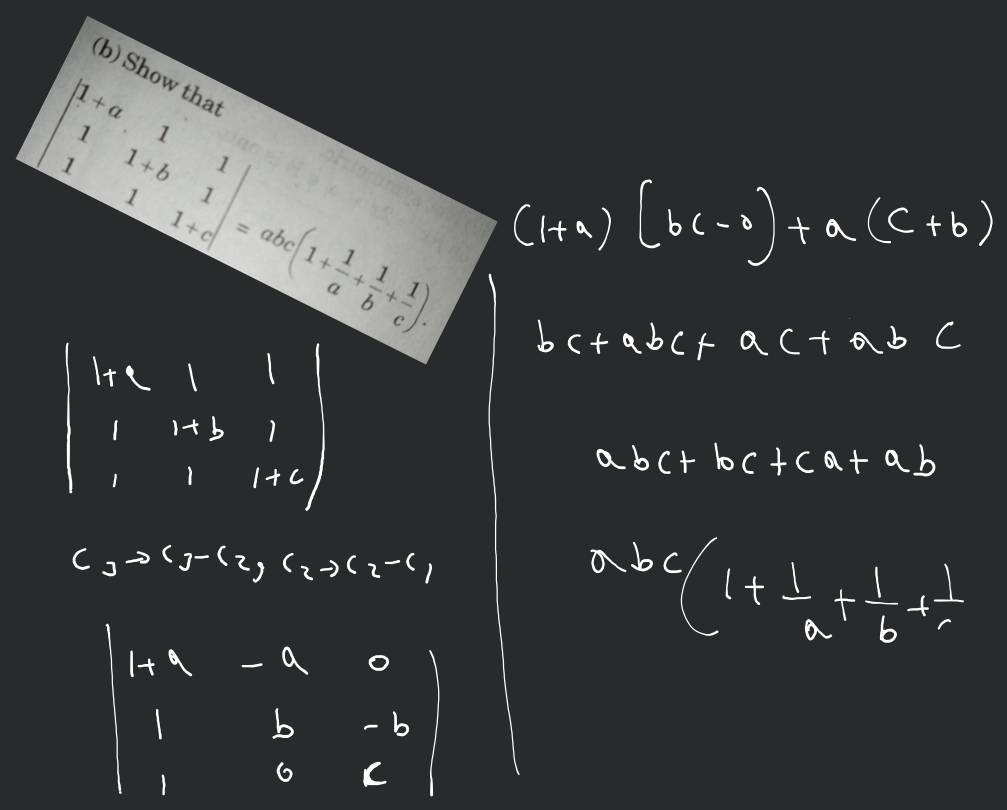 (b) Show that
|1+a 1 1|
|1 1+b 1|
|1 1 1+c| = abc(1+1/a+1/b+1/c).
|1+a 1 1|
|1 1+b 1|
|1 1 1+c|
C3→C3-C2, C2→C2-C1
|1+a -a 0|
|1 b -b|
|1 0 c|
(1+a) [bc-0)+a(c+b)
bc+abc+ac+ab c
abc+bc+ca+ab
abc(1+1/a+1/b+1/c